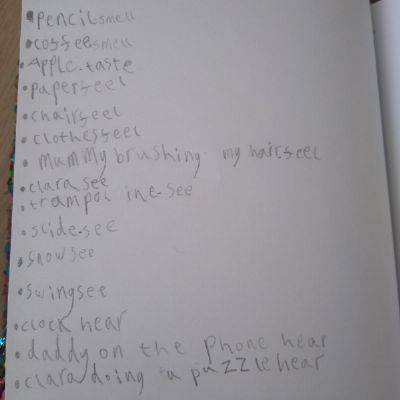 •pencilsmell
•coffeesmell
•Apple.taste
•paperfeel
•chairfeel
•clothesfeel
•mummy brushing my hair.feel
•clara see
•trampol ine-see
•slide.see
•snowsee
•swingsee
•clock hear
•daddy on the phone hear
•clara doing a puzzle hear